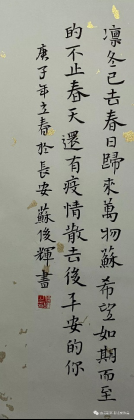 凛冬已去春日歸來萬物蘇希望如期而至
的不止春天還有疫情散去後平安的你
庚子年立春於長安蘇俊輝書